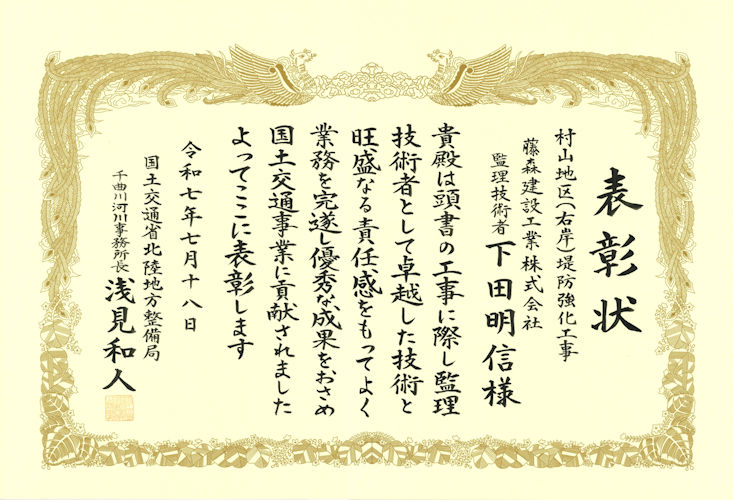 表彰状
村山地区(右岸)堤防強化工事
藤森建設工業株式会社
監理技術者 下田明信様
貴殿は頭書の工事に際し監理
技術者として卓越した技術と
旺盛なる責任感をもってよく
業務を完遂し優秀な成果をおさめ
国土交通事業に貢献されました
よってここに表彰します
令和七年七月十八日
国土交通省北陸地方整備局
千曲川河川事務所長 浅見和人